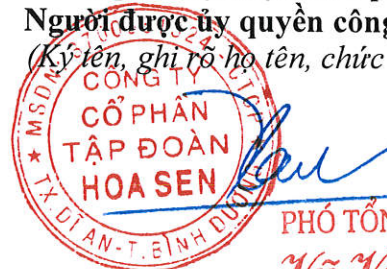 Người được ủy quyền công
(Ký tên, ghi rõ họ tên, chức
CÔNG TY
CỔ PHẦN
TẬP ĐOÀN
HOA SEN
TX.DĨ AN-T.BÌNH DƯƠNG
PHÓ TỔN